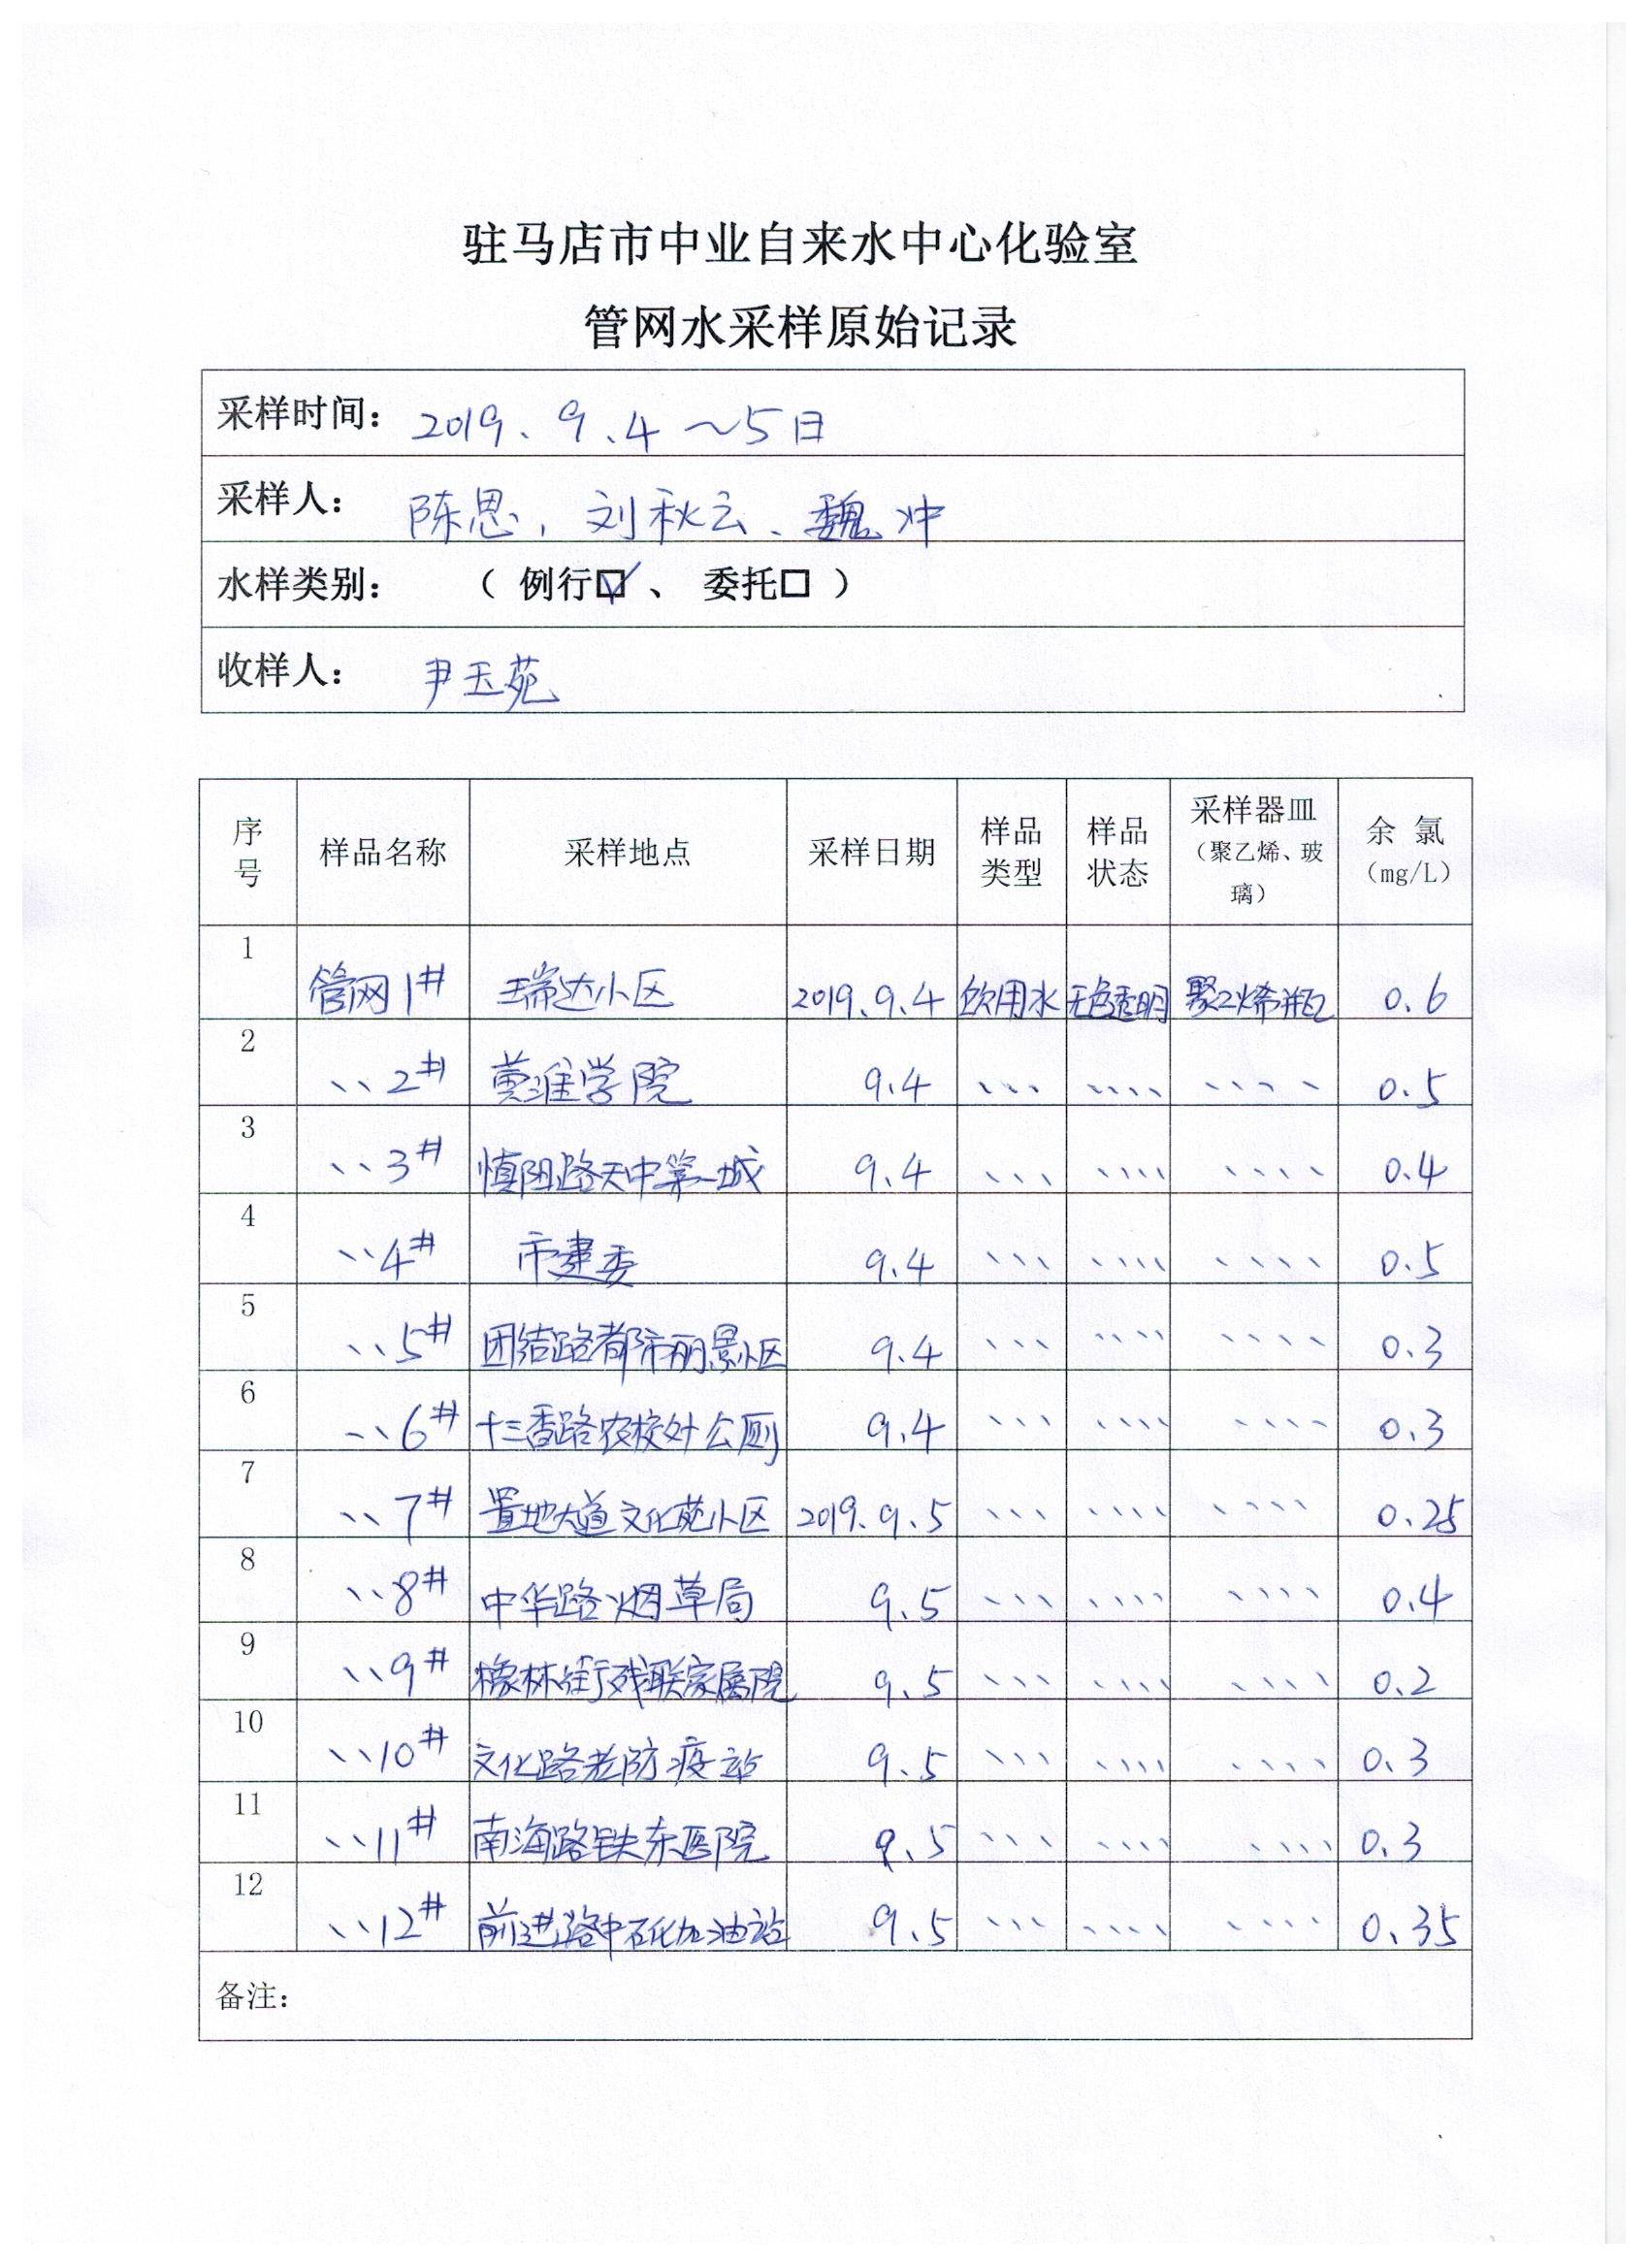 驻马店市中业自来水中心化验室
管网水采样原始记录
采样时间： 2019、9、4～5日
采样人： 陈思，刘秋云、魏冲
水样类别： （ 例行☑、 委托□ ）
收样人： 尹玉苑
序号 样品名称 采样地点 采样日期 样品类型 样品状态 采样器皿（聚乙烯、玻璃） 余氯（mg/L）
1 管网1# 瑞达小区 2019.9.4 饮用水 无色透明 聚乙烯瓶 0.6
2 、、2# 黄淮学院 9.4 、、、 、、、、 、、、、 0.5
3 、、3# 慎阳路天中第一城 9.4 、、、 、、、、 、、、、 0.4
4 、、4# 市建委 9.4 、、、 、、、、 、、、、 0.5
5 、、5# 团结路都市丽景小区 9.4 、、、 、、、、 、、、、 0.3
6 、、6# 十三香路农校处公厕 9.4 、、、 、、、、 、、、、 0.3
7 、、7# 置地大道文化苑小区 2019.9.5 、、、 、、、、 、、、、 0.25
8 、、8# 中华路烟草局 9.5 、、、 、、、、 、、、、 0.4
9 、、9# 橡林街残联家属院 9.5 、、、 、、、、 、、、、 0.2
10 、、10# 文化路老防疫站 9.5 、、、 、、、、 、、、、 0.3
11 、、11# 南海路铁东医院 9.5 、、、 、、、、 、、、、 0.3
12 、、12# 前进路中石化加油站 9.5 、、、 、、、、 、、、、 0.35
备注：